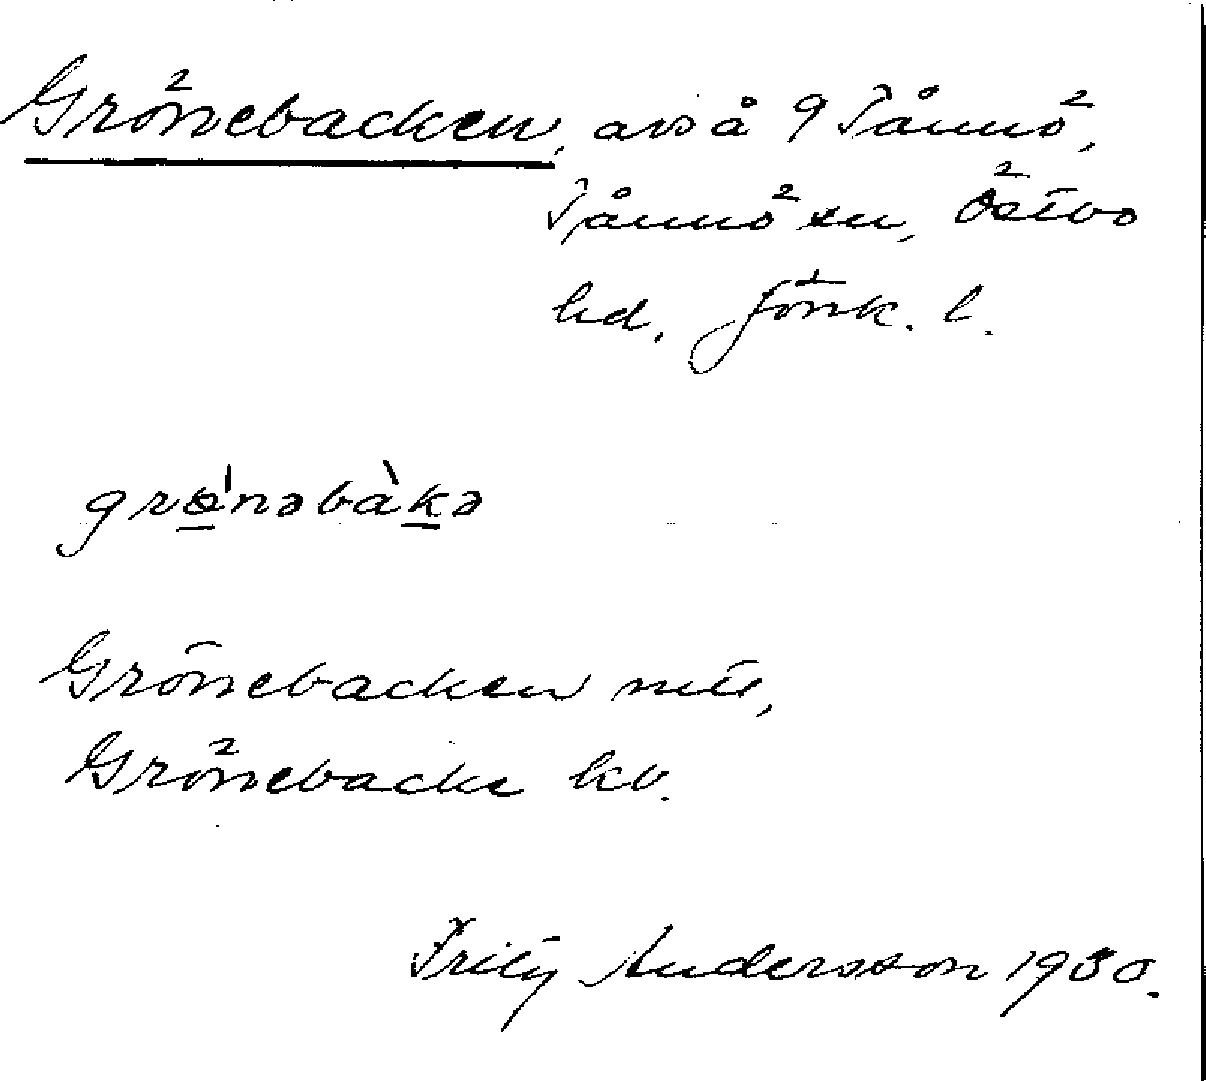 Grönebacken, avs å 9 Tånnö,
Tånnö sn, Östbo
hd, Jönk. l.
grø̱'nəbàḵə
Grönebacken mtl,
Grönebacke kb.
Frity Andersson 1930.